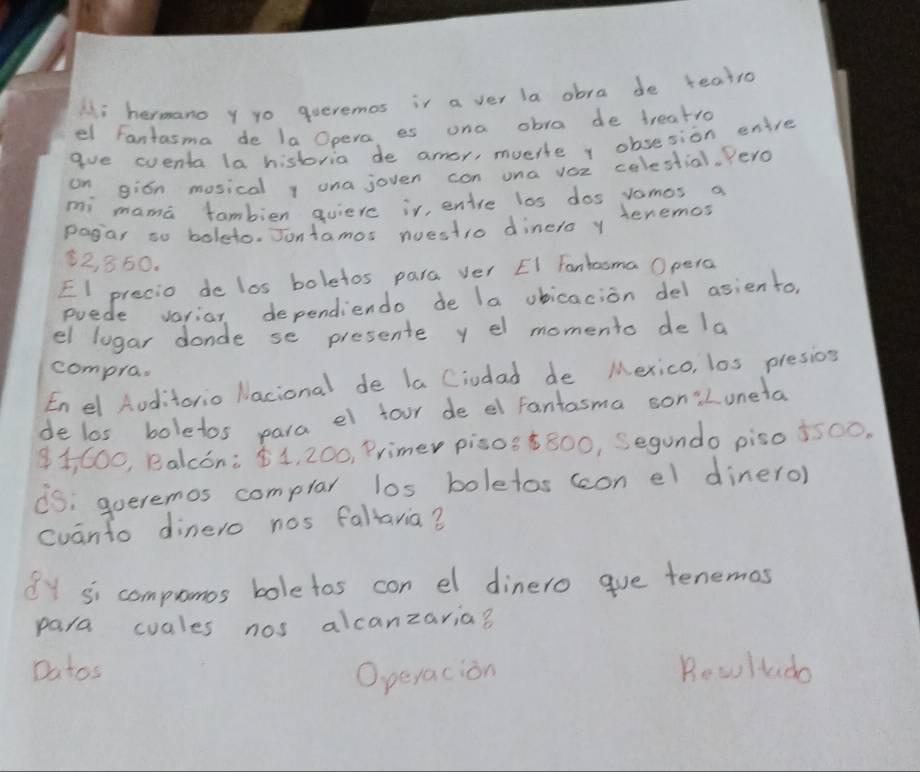 Mi hermano y yo queremos ir a ver la obra de teatro
el Fantasma de la Opera es una obra de treatro
que cuenta la historia de amor, muerte y obsesión entre
un gión musical y una joven con una voz celestial. Pero
mi mamá tambien quiere ir, entre los dos vamos a
pagar su boleto. Juntamos nuestro dinero y tenemos
$2,850.
El precio de los boletos para ver El Fantasma Opera
puede variar dependiendo de la ubicación del asiento,
el lugar donde se presente y el momento de la
compra.
En el Auditorio Nacional de la Ciudad de Mexico, los presios
de los boletos para el tour de el Fantasma son: Luneta
$1,600, Balcón: $1.200, Primer piso: $800, Segundo piso $500.
¿Si queremos comprar los boletos (con el dinero)
cuánto dinero nos faltaria?
¿Y si compramos boletos con el dinero que tenemos
para cuales nos alcanzaria?
Datos Operación Resultado